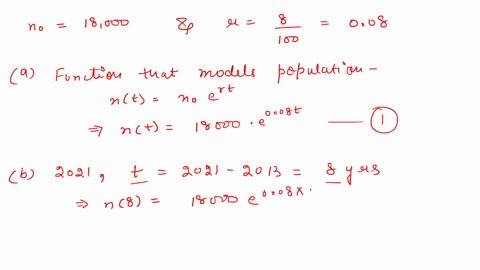 n₀ = 18,000 & r = 8/100 = 0.08
(a) Function that models population -
n(t) = n₀ e^rt
⇒ n(t) = 18000 · e^0.08t —— ①
(b) 2021, t = 2021 - 2013 = 8 yrs
⇒ n(8) = 18000 e^0.08×.